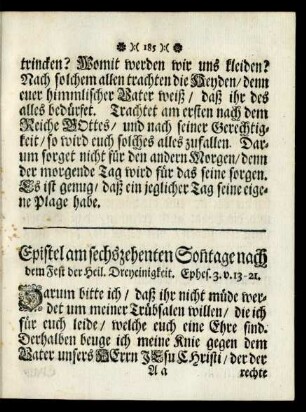 ✽ )( 185 )( ✽
trincken? Womit werden wir uns kleiden?
Nach solchem allen trachten die Heyden/ denn
euer himmlischer Vater weiß/ daß ihr des
alles bedürfet. Trachtet am ersten nach dem
Reiche GOttes/ und nach seiner Gerechtig-
keit/ so wird euch solches alles zufallen. Dar-
um sorget nicht für den andern Morgen/ denn
der morgende Tag wird für das seine sorgen.
Es ist genug/ daß ein jeglicher Tag seine eige-
ne Plage habe.
Epistel am sechszehenten Sontage nach
dem Fest der Heil. Dreyeinigkeit. Ephes. 3. v. 13-21.
Darum bitte ich/ daß ihr nicht müde wer-
det um meiner Trübsalen willen/ die ich
für euch leide/ welche euch eine Ehre sind.
Derhalben beuge ich meine Knie gegen dem
Vater unsers HErrn JEsu Christi/ der der
A a rechte